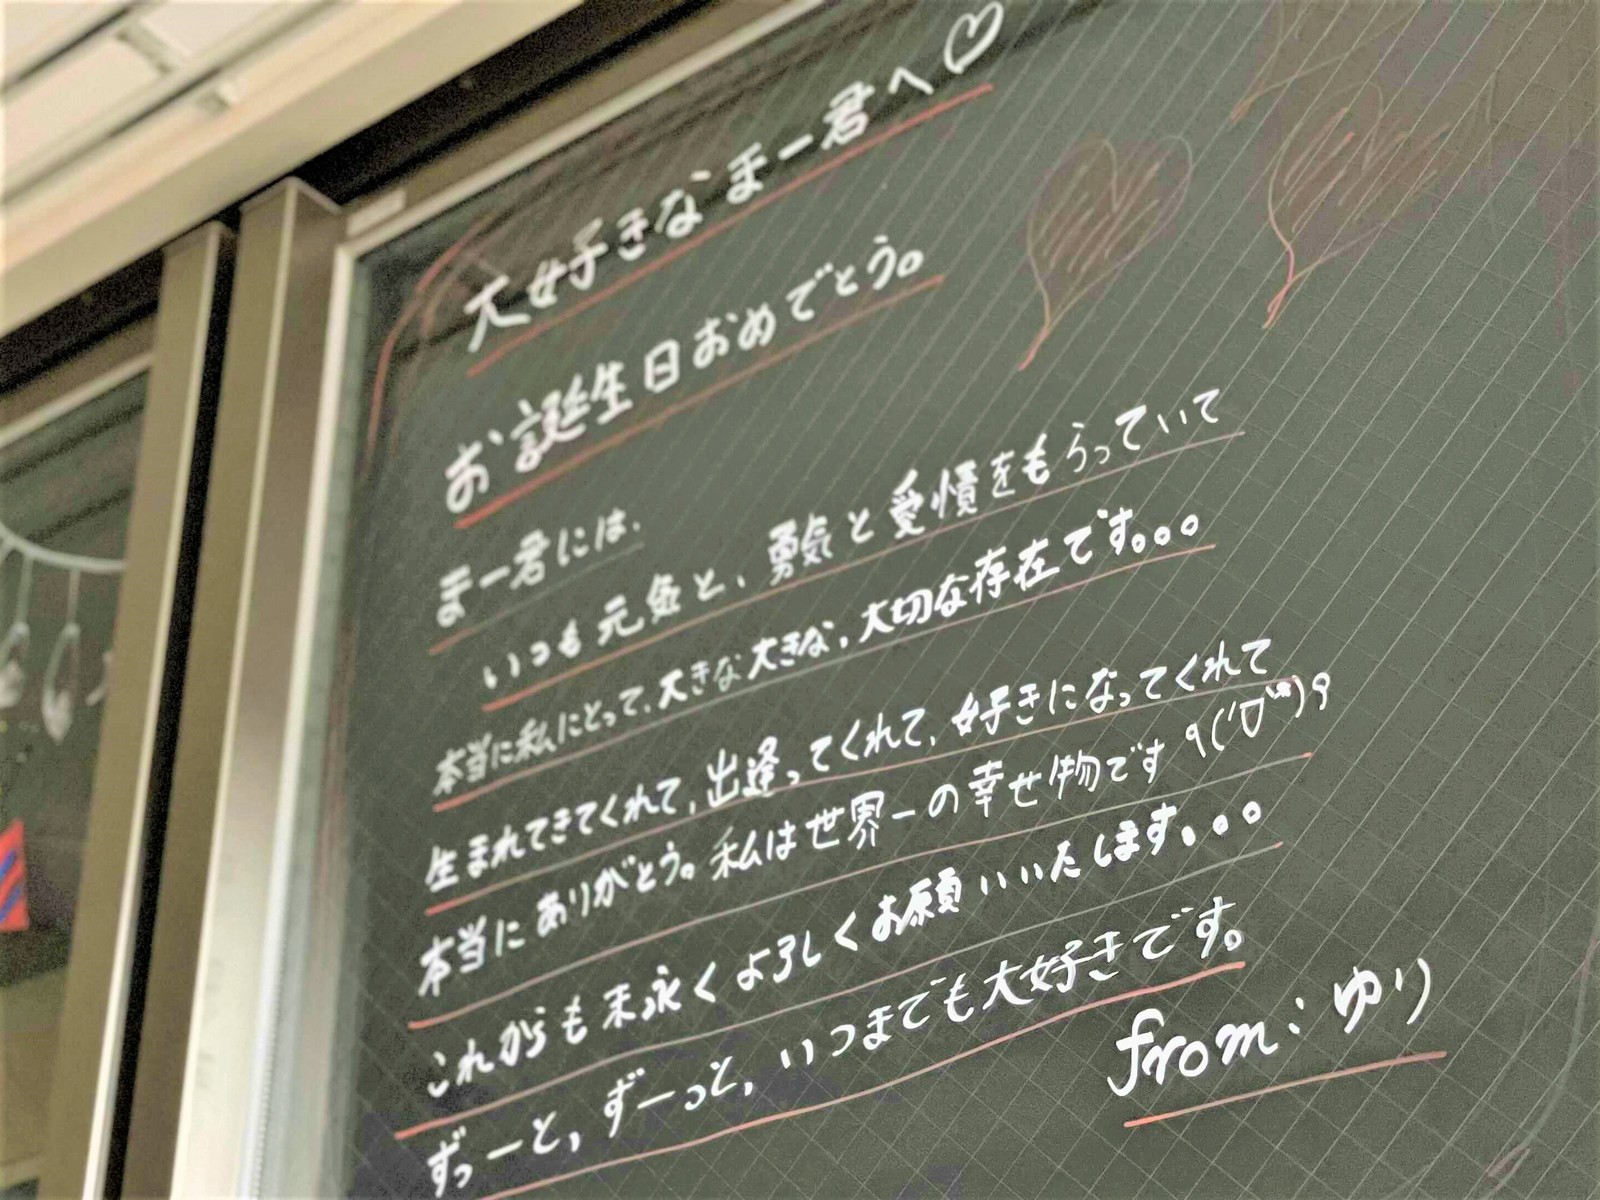 大好きなまー君へ♡
お誕生日おめでとう。
まー君には、
いつも元気と、勇気と愛情をもらっていて
本当に私にとって、大きな大きな、大切な存在です。。。
生まれてきてくれて、出逢ってくれて、好きになってくれて
本当にありがとう。私は世界一の幸せ物です٩(ˊᗜˋ*)و
これからも末永くよろしくお願いいたします。。。
ずっーと、ずーっと、いつまでも大好きです。
from:ゆり